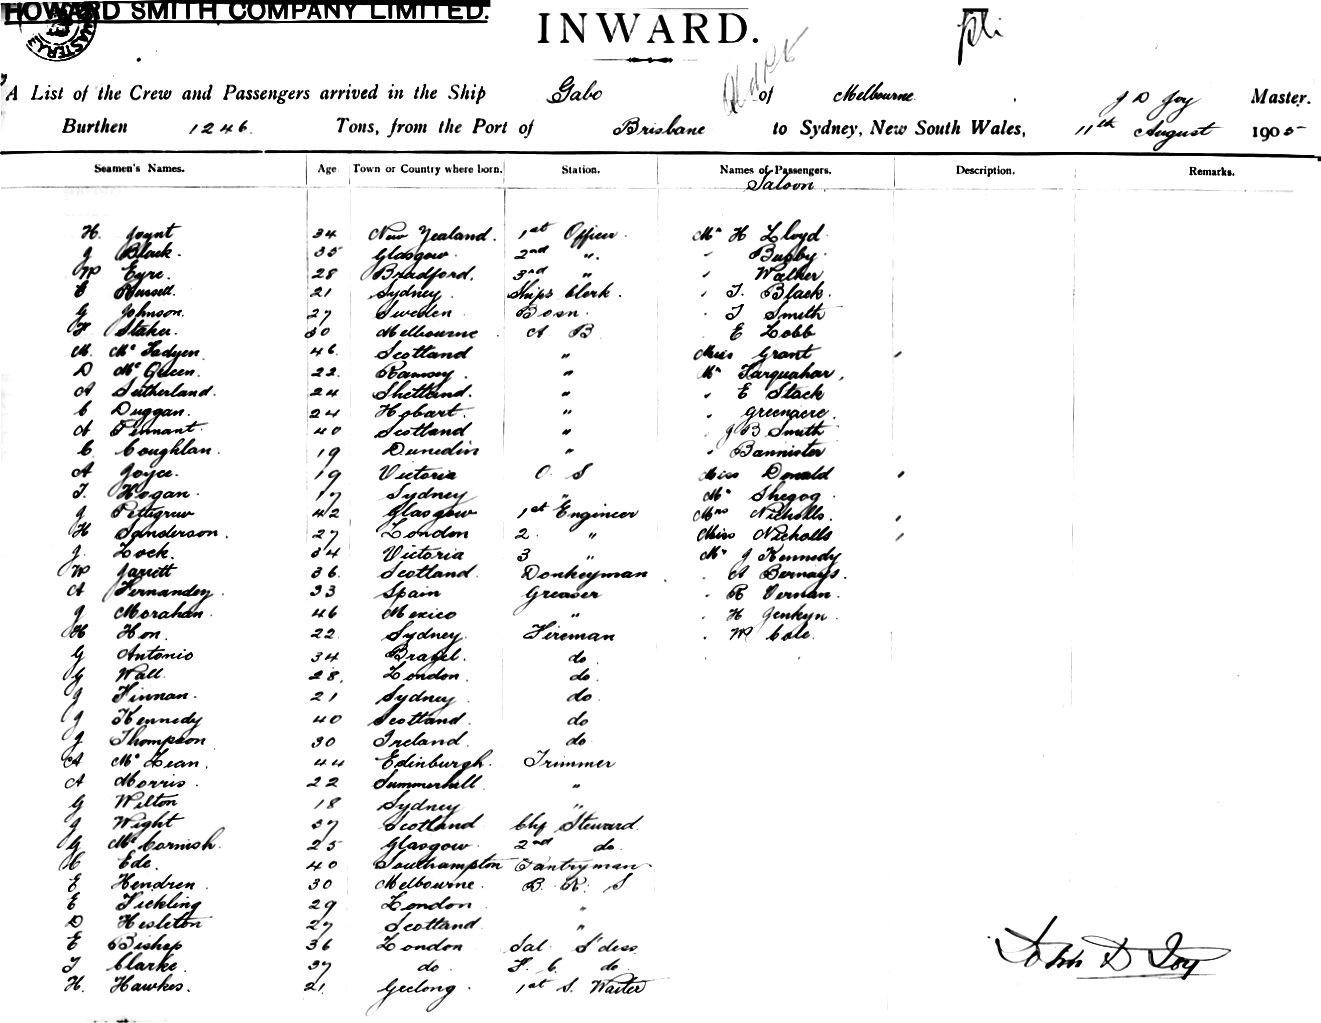 HOWARD SMITH COMPANY LIMITED.
INWARD.
A List of the Crew and Passengers arrived in the Ship Gabo of Melbourne J D Joy Master.
Burthen 1246 Tons, from the Port of Brisbane to Sydney, New South Wales, 11th August 1905
Seamen's Names. Age Town or Country where born. Station. Names of Passengers. Description. Remarks.
Saloon
H. Joynt 34 New Zealand. 1st Officer. Mr H Lloyd
J Black. 35 Glasgow. 2nd ". " Bugby.
W Eyre. 28 Bradford. 3rd " " Walker
E Russell. 21 Sydney. Ships Clerk. " T. Black.
G Johnson. 27 Sweden Bosn. " T Smith
H Staker. 30 Melbourne A B " E Lobb
M. McFadyen 46. Scotland " Miss Grant
D McQueen. 22. Ramsey. " Mr Farquahar,
A Sutherland. 24 Shetland. " " E Stack
C Duggan. 24 Hobart. " " Greenacre.
A Tennant. 40 Scotland " " J B Smith
C. Coughlan. 19 Dunedin " " Bannister
A Joyce. 19 Victoria O S Miss Donald
T. Hogan. 17 Sydney " Mr Shegog
J Pettigrew 42 Glasgow 1st Engineer Mrs Nicholls.
H Sanderson. 27 London 2 " Miss Nicholls
J. Lock. 34 Victoria 3 " Mr J Kennedy
W Jarrett 36. Scotland. Donkeyman " A Bernays.
A Fernandey. 33 Spain Greaser " R Vernan.
J Morahan. 46 Mexico " " H Jenkyn
H Hon. 22 Sydney. Fireman " W Cole.
G Antonio 34 Brazil. do.
G Wall 28. London. do.
J Finnan. 21 Sydney. do.
J Kennedy 40 Scotland. do
J Thompson 30 Ireland. do.
A McLean. 44 Edinburgh. Trimmer
A Morris. 22 Summerhill "
G Wilton 18 Sydney "
J Wight 37 Scotland Chf Steward.
G McCornish. 25 Glasgow. 2nd do.
C Ede. 40 Southampton Pantryman
E Hendren. 30 Melbourne. B. R. S
E Fickling 29 London. "
D Hesleton 27 Scotland. "
E Bishop 36 London Sal. S'dess
T Clarke. 37 do. F. C. do
H. Hawkes. 21 Geelong. 1st S. Waiter
John D Joy